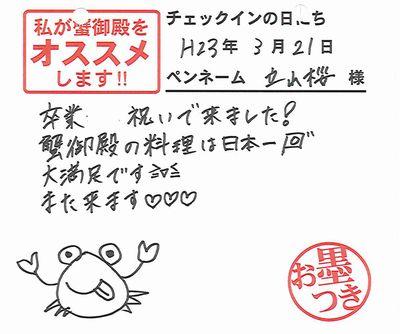 私が蟹御殿を
オススメ
します!!
チェックインの日にち
H23年 3月21日
ペンネーム 立山桜 様
卒業 祝いで来ました!
蟹御殿の料理は日本一
大満足です
また来ます♡♡♡
お墨つき